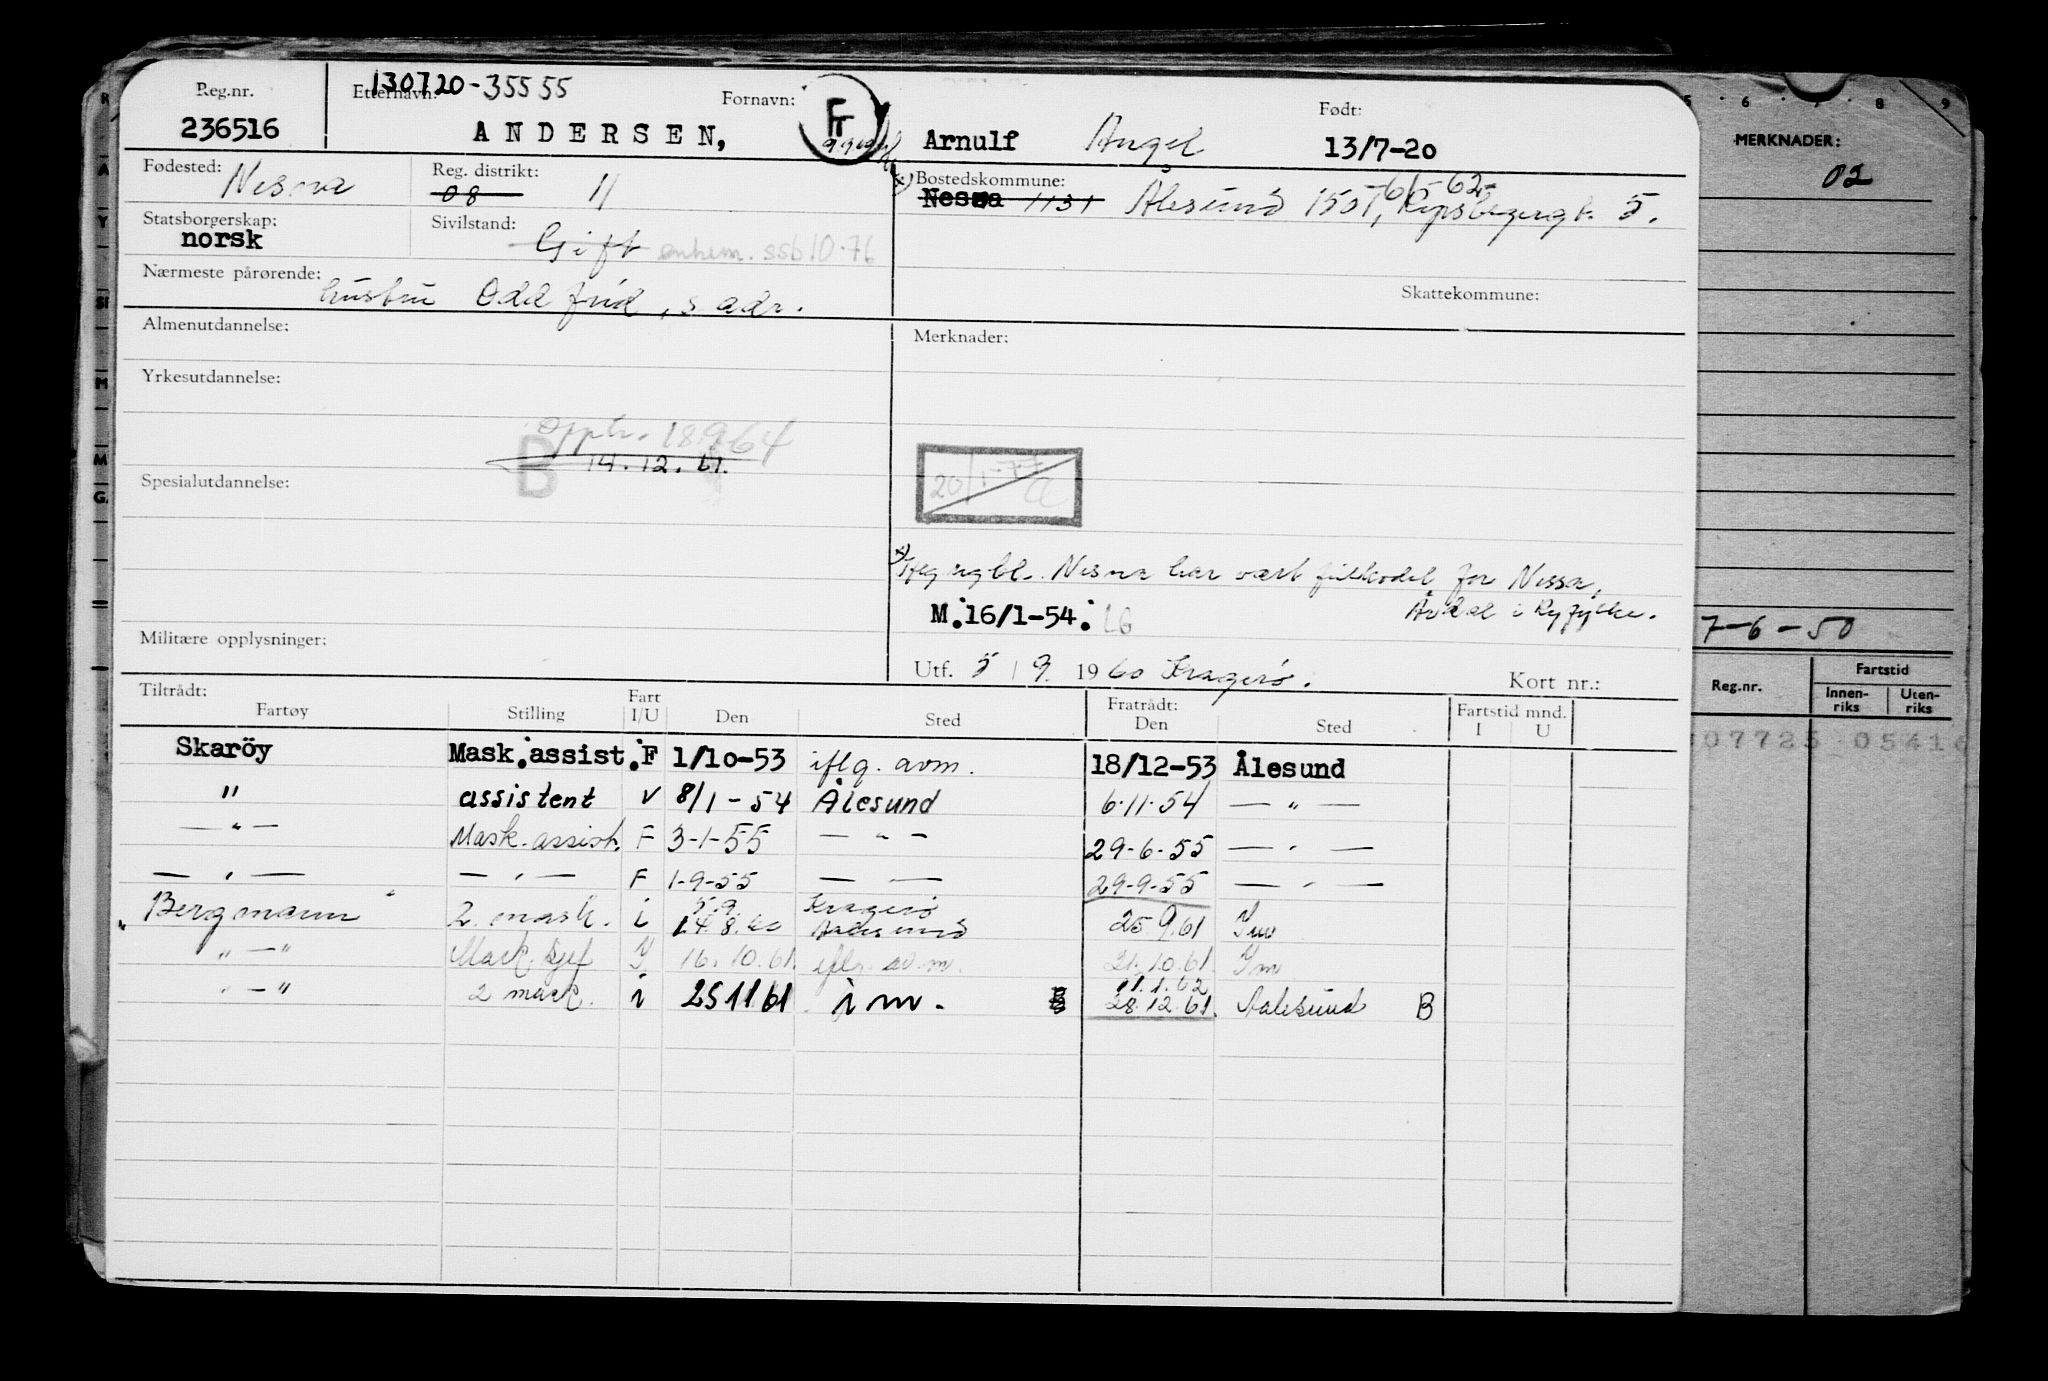 Reg.nr. 236516
Etternavn: 130720-35555
ANDERSEN,
Fornavn: Arnulf Angel
Født: 13/7-20
Fødested: Nesna
Reg. distrikt: 08 11
Bostedskommune: x) Nessa 1131 Ålesund 1501, 5.
Statsborgerskap: norsk
Sivilstand: Gift enkem. ssb 10.76
Nærmeste pårørende: hustru Oddfrid, s adr.
Skattekommune:
Almenutdannelse:
Merknader:
Yrkesutdannelse:
Opph. 18.9.64
B 14.12.61.
Spesialutdannelse:
20/1-77 a
x) Ifølg Nesna har vært feilkodet for Nessa,
Årdal i Ryfylke.
M. 16/1-54. LG
Militære opplysninger:
Utf. 5/9. 1960 Kragerø.
Kort nr.:
Tiltrådt:
Fartøy Stilling Fart I/U Den Sted Fratrådt: Den Sted Fartstid mnd. I U
Skaröy Mask.assist. F 1/10-53 iflg. avm. 18/12-53 Ålesund
" assistent V 8/1-54 Ålesund 6.11.54 — " —
— " — Mask.assist. F 3-1-55 — " — 29-6-55 — " —
— " — — " — F 1-9-55 — — 29-9-55 — " —
5.9. Kragerø
"Bergmann" 2. mask. i 14.8.60 Aalesund 25.9.61 Im
" — " Mask.sjef Y 16.10.61. iflg. av.m. 21.10.61. Ym
11.1.62
" — " 2 mask. i 25 11 61 i m. 28.12.61. Aalesund B
5 6 7 8 9
MERKNADER:
02
7-6-50
Reg.nr. Fartstid
Innen-riks Uten-riks
07725 05416